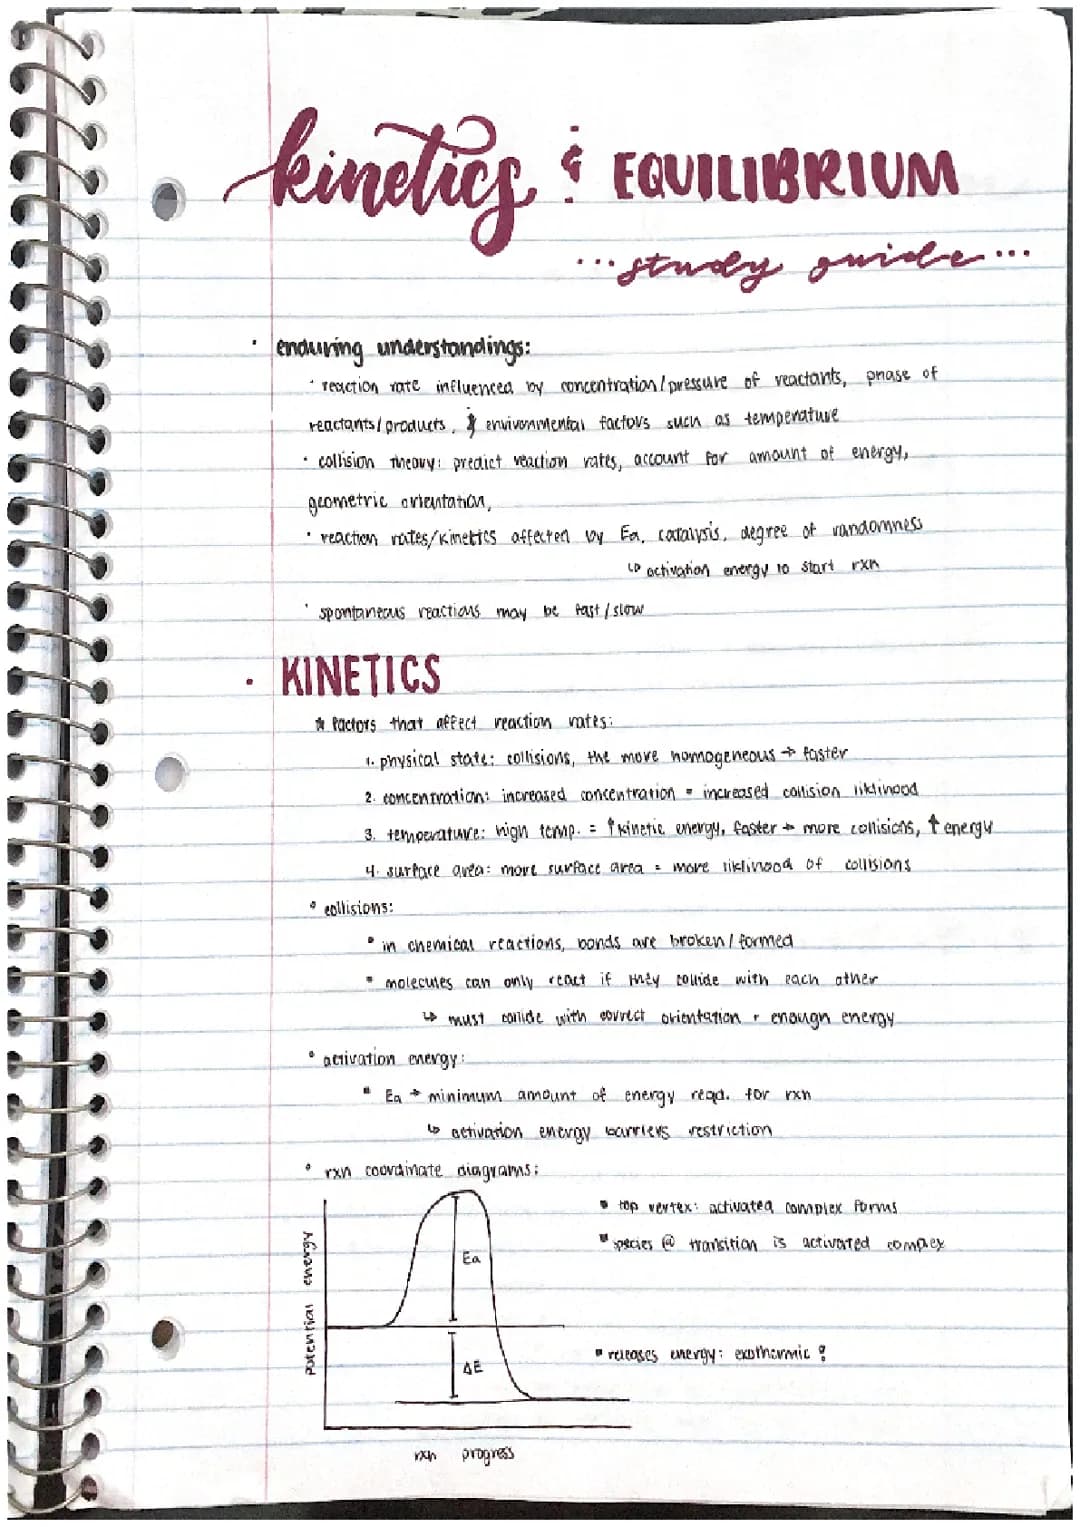 kinetics & EQUILIBRIUM
...study guide...
· enduring understandings:
· reaction rate influenced by concentration/pressure of reactants, phase of
reactants/products, & environmental factors such as temperature
· collision theory: predict reaction rates, account for amount of energy,
geometric orientation,
· reaction rates/kinetics affected by Ea, catalysis, degree of randomness
↳ activation energy to start rxn
· spontaneous reactions may be fast/slow
· KINETICS
* factors that affect reaction rates:
1. physical state: collisions, the more homogeneous → faster
2. concentration: increased concentration = increased collision liklihood
3. temperature: high temp. = ↑kinetic energy, faster → more collisions, ↑energy
4. surface area: more surface area = more liklihood of collisions
• collisions:
• in chemical reactions, bonds are broken/formed
• molecules can only react if they collide with each other
↳ must collide with correct orientation + enough energy
• activation energy:
• Ea → minimum amount of energy reqd. for rxn
↳ activation energy barriers restriction
• rxn coordinate diagrams:
• top vertex: activated complex forms
• species @ transition is activated complex
potential energy
Ea
ΔE
• releases energy: exothermic!
rxn progress